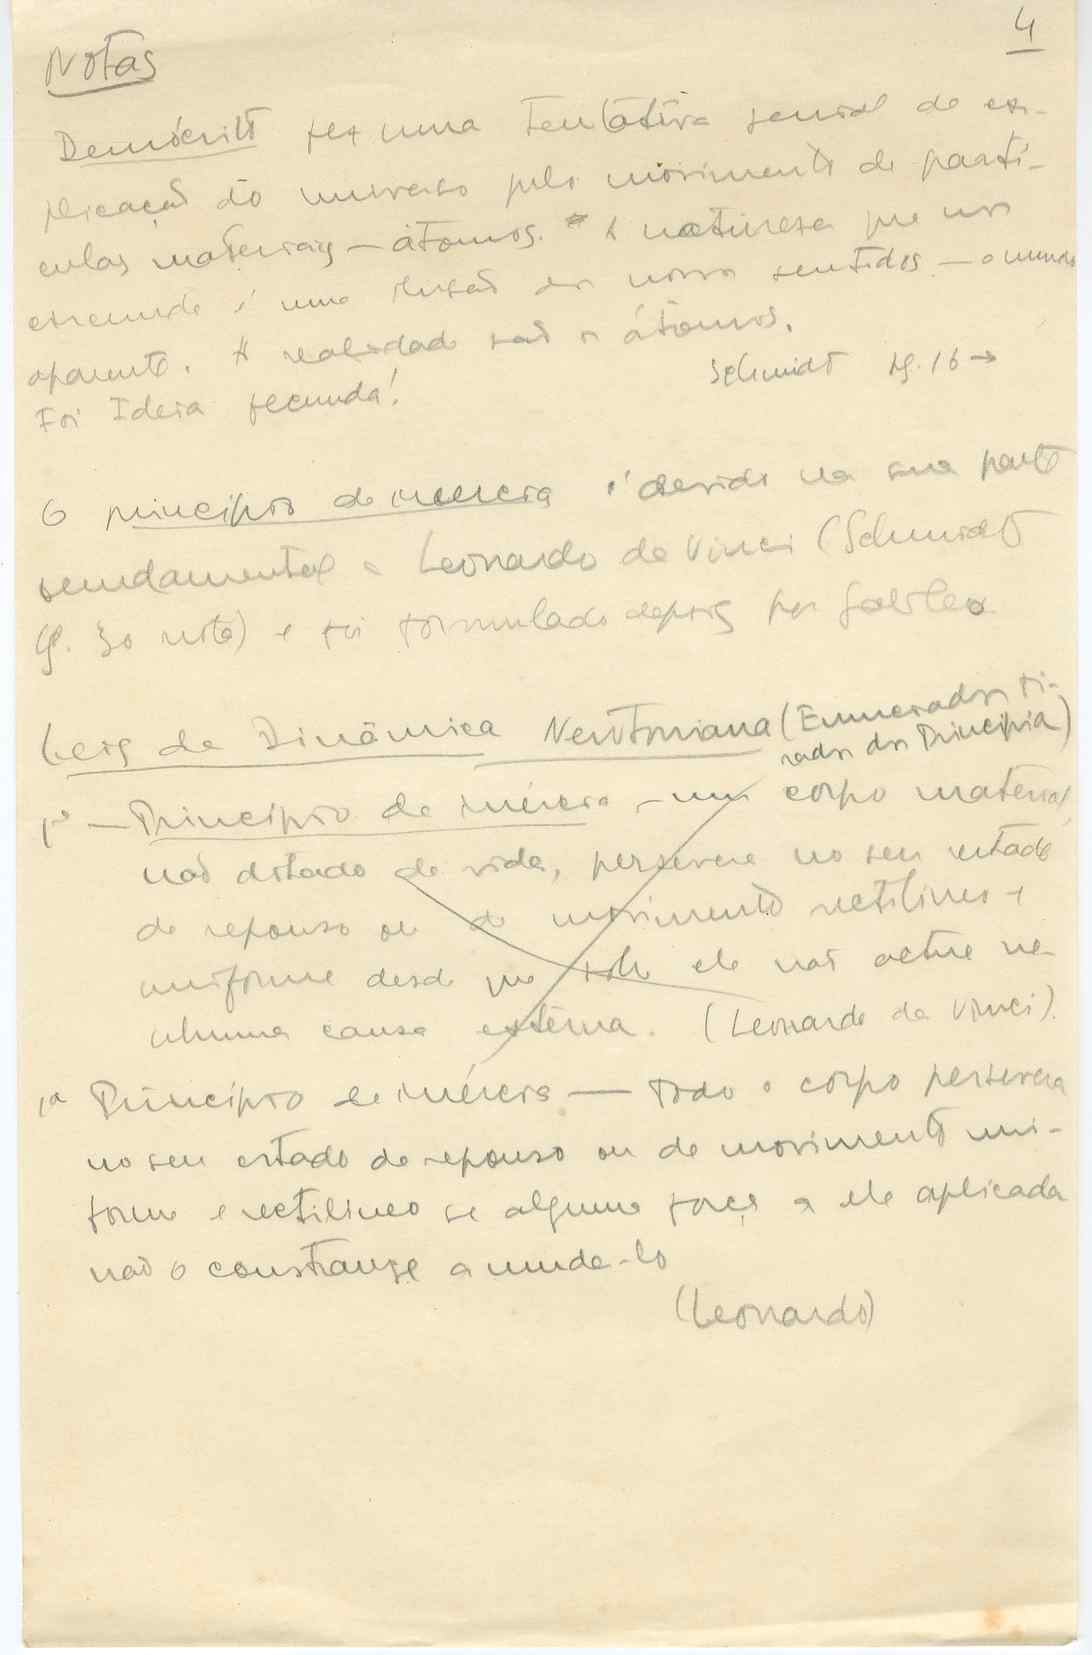 4
Notas
Demócrito fez uma tentativa genial de ex-
plicação do universo pelo movimento de partí-
culas materiais – átomos. A natureza que nos
esconde é uma ilusão dos nossos sentidos – o mundo
aparente. A realidade são os átomos.
Foi Ideia fecunda! Schmidt pg. 16 →
O principio de inercia é devido na sua parte
fundamental a Leonardo da Vinci (Schmidt
pg. 30 nota) e foi formulado depois por Galileo
Leis da Dinâmica Newtoniana (Enunciados ti-
rados dos Principia)
1º – Princípio de inércia – um corpo material,
não dotado de vida, persevera no seu estado
de repouso ou de movimento rectilineo e
uniforme desde que sobre ele não actue ne-
nhuma causa externa. (Leonardo da Vinci).
1ª Princípio de inércia — Todo o corpo persevera
no seu estado de repouso ou de movimento uni-
forme e rectilineo se alguma força a ele aplicada
não o constrange a muda-lo
(Leonardo)